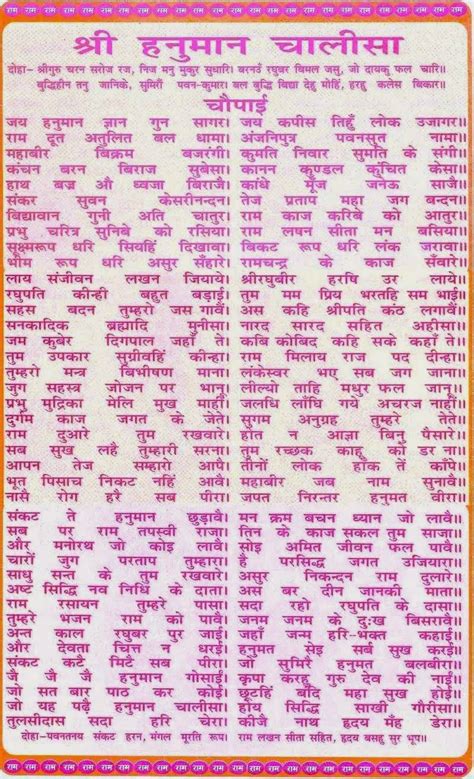 श्री हनुमान चालीसा
दोहा- श्रीगुरु चरन सरोज रज, निज मनु मुकुर सुधारि। बरनउँ रघुबर बिमल जसु, जो दायकु फल चारि॥
बुद्धिहीन तनु जानिके, सुमिरौं पवन-कुमार। बल बुद्धि बिद्या देहु मोहिं, हरहु कलेस बिकार॥
चौपाई
जय हनुमान ज्ञान गुन सागर। जय कपीस तिहुँ लोक उजागर॥
राम दूत अतुलित बल धामा। अंजनिपुत्र पवनसुत नामा॥
महाबीर बिक्रम बजरंगी। कुमति निवार सुमति के संगी॥
कंचन बरन बिराज सुबेसा। कानन कुण्डल कुंचित केसा॥
हाथ बज्र औ ध्वजा बिराजै। काँधे मूँज जनेऊ साजै॥
संकर सुवन केसरीनन्दन। तेज प्रताप महा जग बन्दन॥
विद्यावान गुनी अति चातुर। राम काज करिबे को आतुर॥
प्रभु चरित्र सुनिबे को रसिया। राम लषन सीता मन बसिया॥
सूक्ष्मरूप धरि सियहिं दिखावा। बिकट रूप धरि लंक जरावा॥
भीम रूप धरि असुर सँहारे। रामचन्द्र के काज सँवारे॥
लाय संजीवन लखन जियाये। श्रीरघुबीर हरषि उर लाये॥
रघुपति कीन्ही बहुत बड़ाई। तुम मम प्रिय भरतहि सम भाई॥
सहस बदन तुम्हरो जस गावैं। अस कहि श्रीपति कंठ लगावैं॥
सनकादिक ब्रह्मादि मुनीसा। नारद सारद सहित अहीसा॥
जम कुबेर दिगपाल जहाँ ते। कबि कोबिद कहि सके कहाँ ते॥
तुम उपकार सुग्रीवहिं कीन्हा। राम मिलाय राज पद दीन्हा॥
तुम्हरो मन्त्र बिभीषण माना। लंकेस्वर भए सब जग जाना॥
जुग सहस्त्र जोजन पर भानू। लील्यो ताहि मधुर फल जानू॥
प्रभु मुद्रिका मेलि मुख माहीं। जलधि लाँघि गये अचरज नाहीं॥
दुर्गम काज जगत के जेते। सुगम अनुग्रह तुम्हरे तेते॥
राम दुआरे तुम रखवारे। होत न आज्ञा बिनु पैसारे॥
सब सुख लहै तुम्हारी सरना। तुम रच्छक काहू को डर ना॥
आपन तेज सम्हारो आपै। तीनों लोक हाँक तें काँपै॥
भूत पिसाच निकट नहिं आवै। महाबीर जब नाम सुनावै॥
नासै रोग हरै सब पीरा। जपत निरन्तर हनुमत बीरा॥
संकट ते हनुमान छुड़ावै। मन क्रम बचन ध्यान जो लावै॥
सब पर राम तपस्वी राजा। तिन के काज सकल तुम साजा॥
और मनोरथ जो कोइ लावै। सोइ अमित जीवन फल पावै॥
चारों जुग परताप तुम्हारा। है परसिद्ध जगत उजियारा॥
साधु सन्त के तुम रखवारे। असुर निकन्दन राम दुलारे॥
अष्ट सिद्धि नव निधि के दाता। अस बर दीन जानकी माता॥
राम रसायन तुम्हरे पासा। सदा रहो रघुपति के दासा॥
तुम्हरे भजन राम को पावै। जनम जनम के दुःख बिसरावै॥
अन्त काल रघुबर पुर जाई। जहाँ जन्म हरि-भक्त कहाई॥
और देवता चित्त न धरई। हनुमत सेइ सर्ब सुख करई॥
संकट कटै मिटै सब पीरा। जो सुमिरै हनुमत बलबीरा॥
जै जै जै हनुमान गोसाईं। कृपा करहु गुरु देव की नाईं॥
जो सत बार पाठ कर कोई। छूटहिं बंदि महा सुख होई॥
जो यह पढ़ै हनुमान चालीसा। होय सिद्धि साखी गौरीसा॥
तुलसीदास सदा हरि चेरा। कीजै नाथ हृदय मँह डेरा॥
दोहा-पवनतनय संकट हरन, मंगल मूरति रूप। राम लखन सीता सहित, हृदय बसहु सुर भूप॥